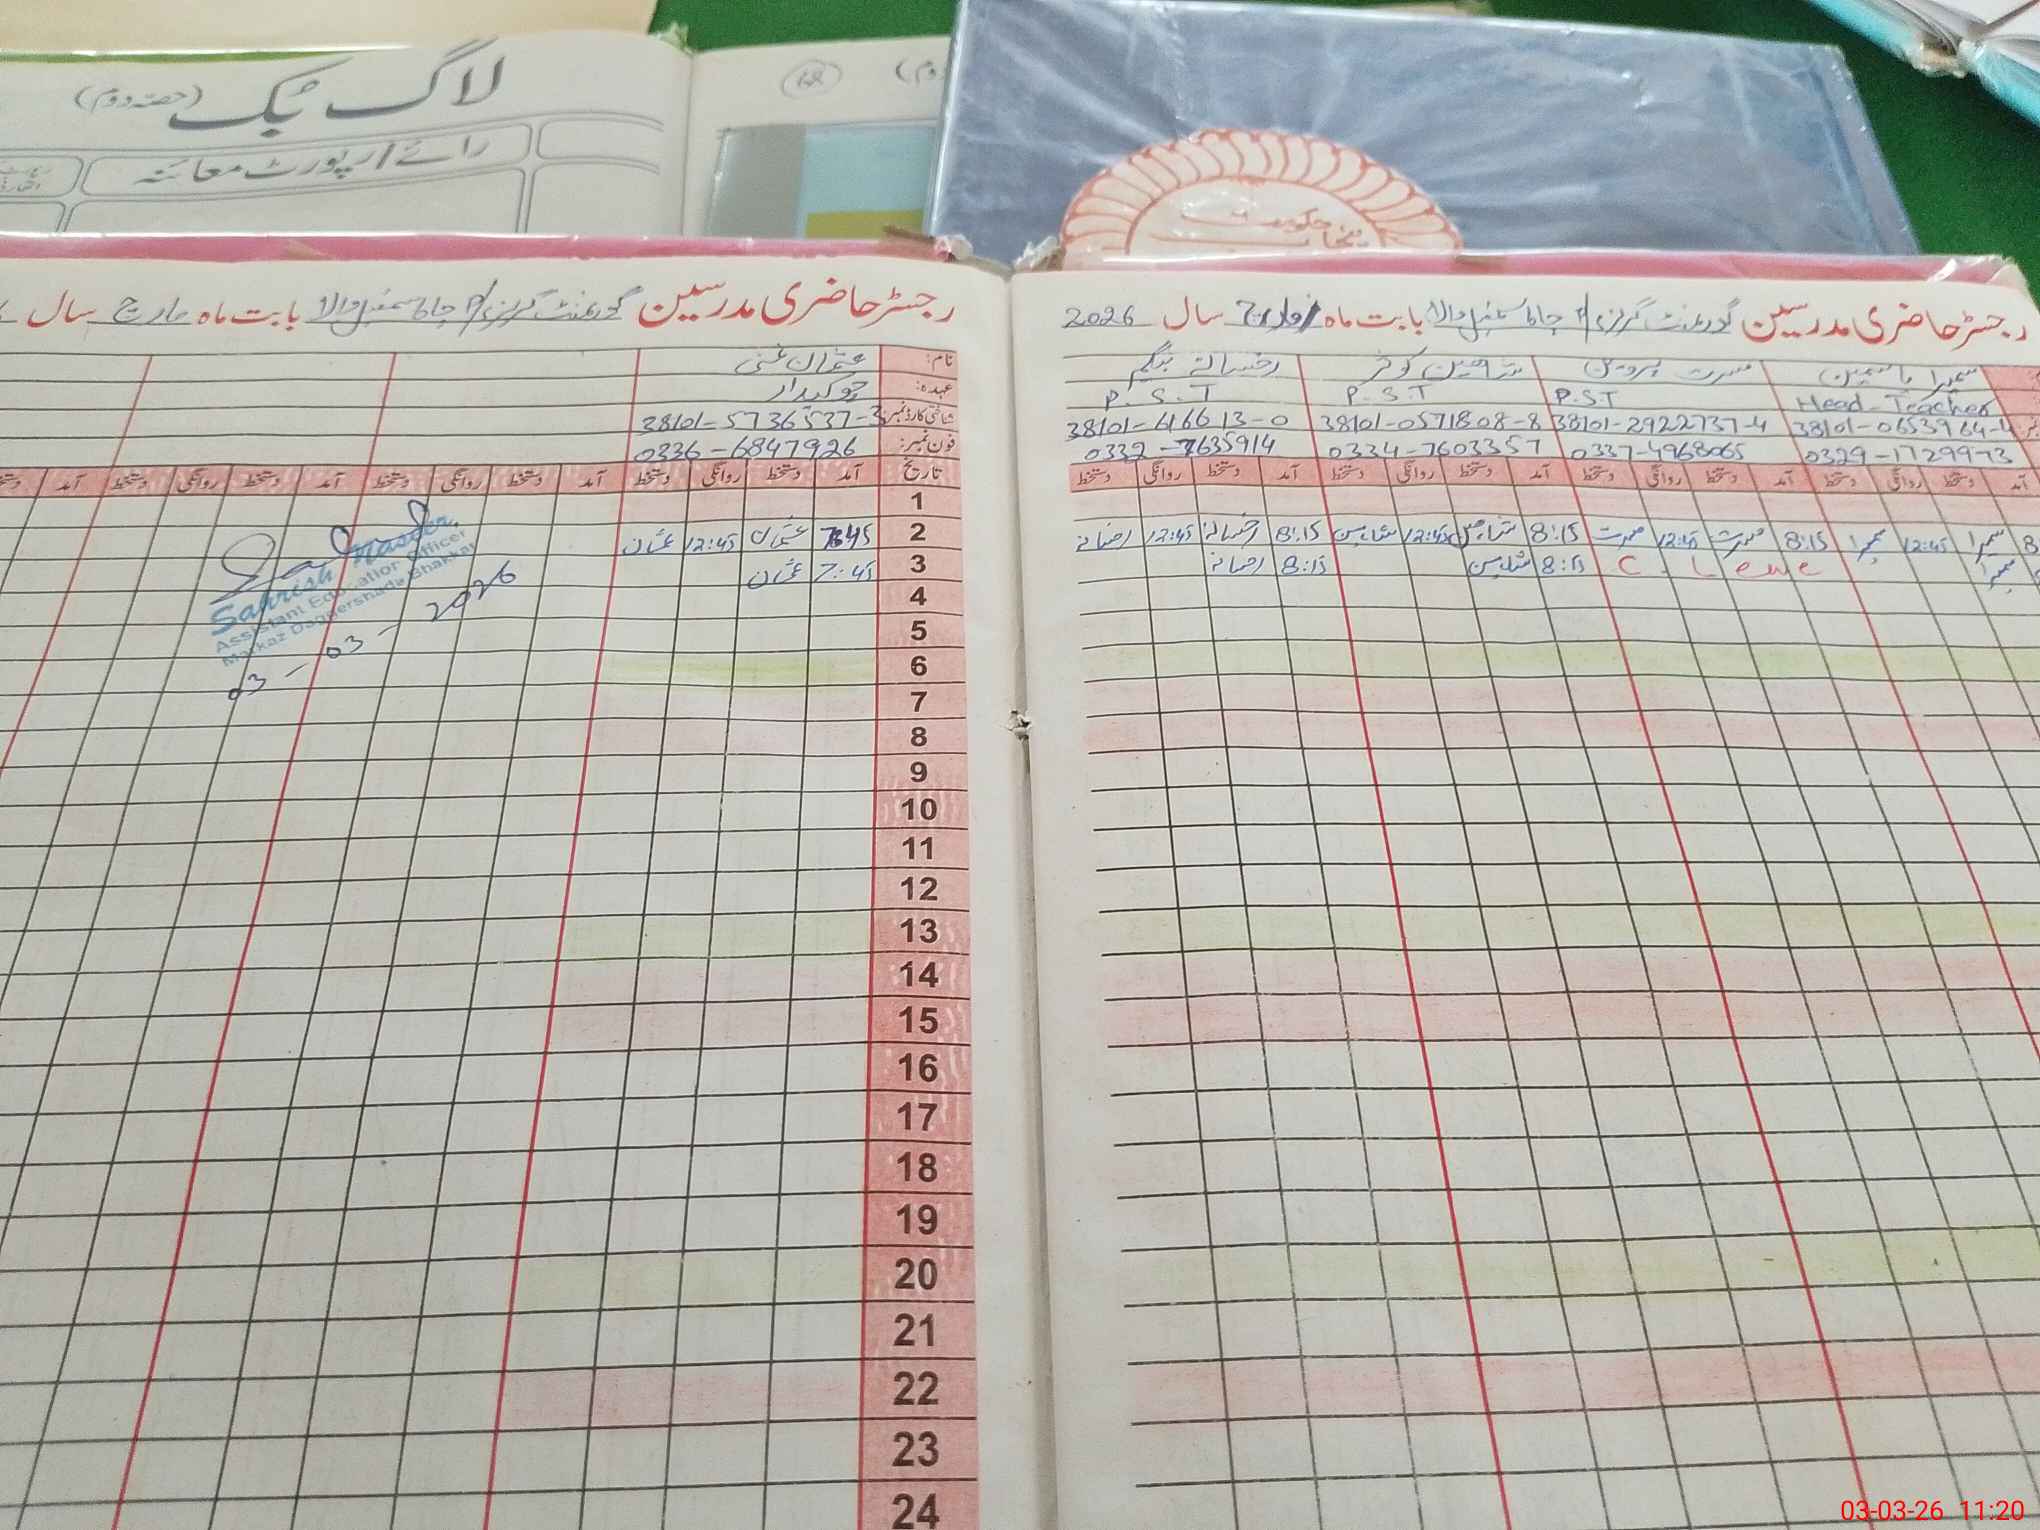 لاگ بک (حصہ دوم)
رائے / رپورٹ معائنہ
68
حکومت پنجاب
رجسٹر حاضری مدرسین گورنمنٹ گرلز بابت ماہ مارچ سال 2026
نام: سمیرا یاسمین مسرت پروین شاہین کوثر رخسانہ بیگم
Head-Teacher P.S.T P.S.T P.S.T
38101-2922737-4 38101-0571808-8 38101-616613-0
0329-1729973 0337-4968065 0334-7603357 0332-7635914
آمد دستخط روانگی دستخط آمد دستخط روانگی دستخط آمد دستخط روانگی دستخط آمد دستخط روانگی دستخط
سمیرا 12:45 سمیرا 8:15 مسرت 12:45 مسرت 8:15 شاہین 12:45 شاہین 8:15 رخسانہ 12:45 رخسانہ
سمیرا C. Leave 8:15 شاہین 8:15 رخسانہ
رجسٹر حاضری مدرسین گورنمنٹ گرلز بابت ماہ مارچ سال
نام: عثمان غنی
عہدہ: چوکیدار
شناختی کارڈ نمبر: 38101-5736537-3
فون نمبر: 0336-6847926
تاریخ آمد دستخط روانگی دستخط آمد دستخط روانگی دستخط آمد دستخط روانگی دستخط آمد دستخط
1
2 7:45 عثمان 12:45 عثمان
3 7:45 عثمان
4
5
6
7
8
9
10
11
12
13
14
15
16
17
18
19
20
21
22
23
24
Sahrish Naseer
Assistant Education Officer
Markaz Daggershada Bhakkar
03-03-2026
03-03-26 11:20